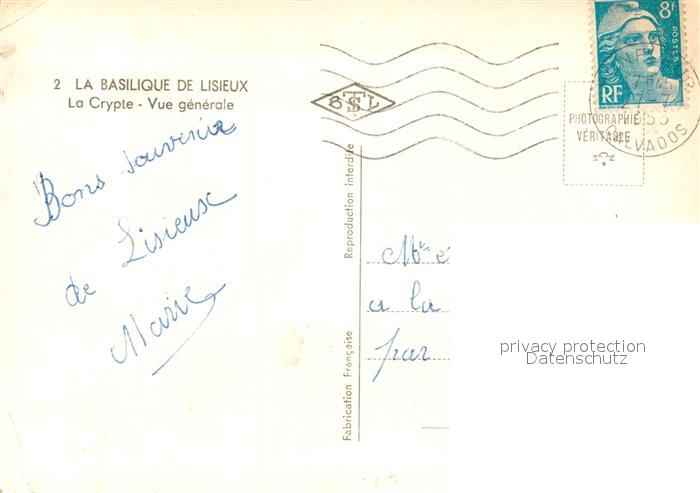 2 LA BASILIQUE DE LISIEUX
La Crypte - Vue générale
Bons souvenirs
de Lisieux
Marie
BSTL
8F
POSTES
RF
PHOTOGRAPHIE
VÉRITABLE
CALVADOS
Reproduction interdite
Fabrication Française
a la
par
privacy protection
Datenschutz